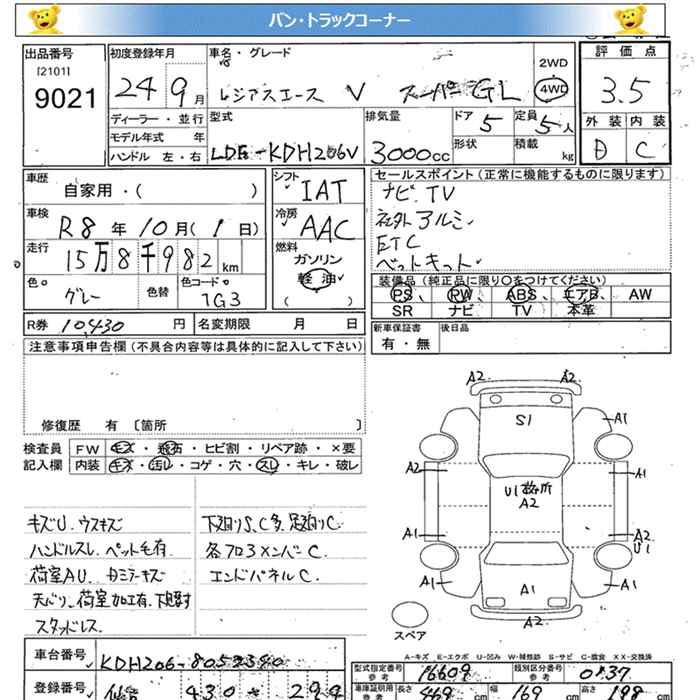 バン・トラックコーナー
出品番号
[2101]
9021
初度登録年月
24 9月
車名・グレード
レジアスエース V スーパーGL
2WD
4WD
評価点
3.5
外装 内装
D C
ディーラー・並行
モデル年式 年
ハンドル 左・右
型式
LDF-KDH206V
排気量
3000cc
ドア 5
定員 5人
形状
積載 kg
車歴
自家用・( )
車検
R8年10月(1日)
走行
15万8千982km
色
グレー
色替
色コード
1G3
シフト
IAT
冷房
AAC
燃料
ガソリン
軽油
( )
セールスポイント(正常に機能するものに限ります)
ナビ.TV
社外アルミ
ETC
ベットキット
装備品(純正品に限り○をつけてください)
PS、 PW、 ABS、 エアB、 AW
SR ナビ TV 本革
R券 10430円
名変期限 月 日
新車保証書
有・無
後日品
注意事項申告欄(不具合内容等は具体的に記入して下さい)
修復歴 有 〔箇所 〕
検査員
記入欄
FW キズ・飛石・ヒビ割・リペア跡・×要
内装 キズ・汚し・コゲ・穴・スレ・キレ・破レ
キズU.ウスキズ
ハンドルスレ.ペット毛有
荷室AU.
天バリ、荷室加工有.
スタッドレス.
下廻りS、C多.足廻りC.
各フロアメンバーC.
エンドパネルC.
A2 A2
S1
A1 A1
A2 A1
U1
A2
A1 A2
U1
A1 A1 A1
A2
スペア
A-キズ E-エクボ U-凹み W-補修跡 S-サビ C-腐食 XX-交換済
車台番号
KDH206-
登録番号
仙台 430 294
型式指定番号
参考
16609
類別区分番号
参考
0137
車検証引用
参考
長さ 469cm
幅 169cm
高さ 198cm